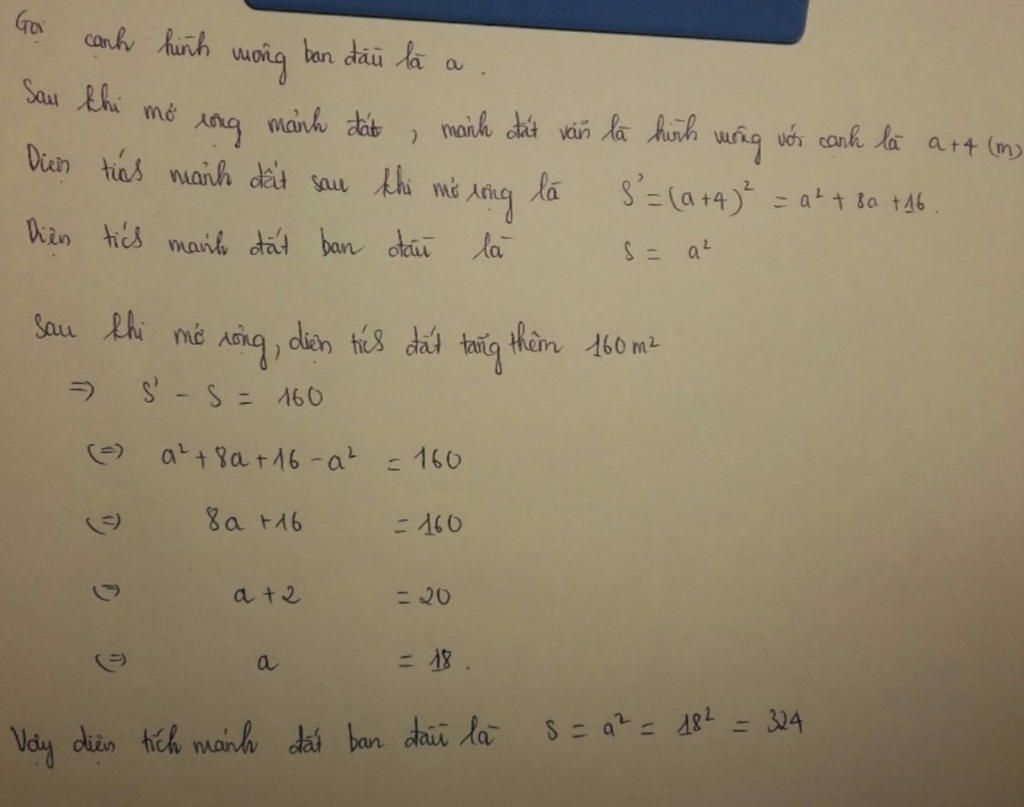 Gọi cạnh hình vuông ban đầu là a.
Sau khi mở rộng mảnh đất, mảnh đất vẫn là hình vuông với cạnh là a+4 (m)
Diện tích mảnh đất sau khi mở rộng là S' = (a+4)² = a² + 8a + 16.
Diện tích mảnh đất ban đầu là S = a²
Sau khi mở rộng, diện tích đất tăng thêm 160 m²
=> S' - S = 160
(=) a² + 8a + 16 - a² = 160
(=) 8a + 16 = 160
(=) a + 2 = 20
(=) a = 18.
Vậy diện tích mảnh đất ban đầu là S = a² = 18² = 324